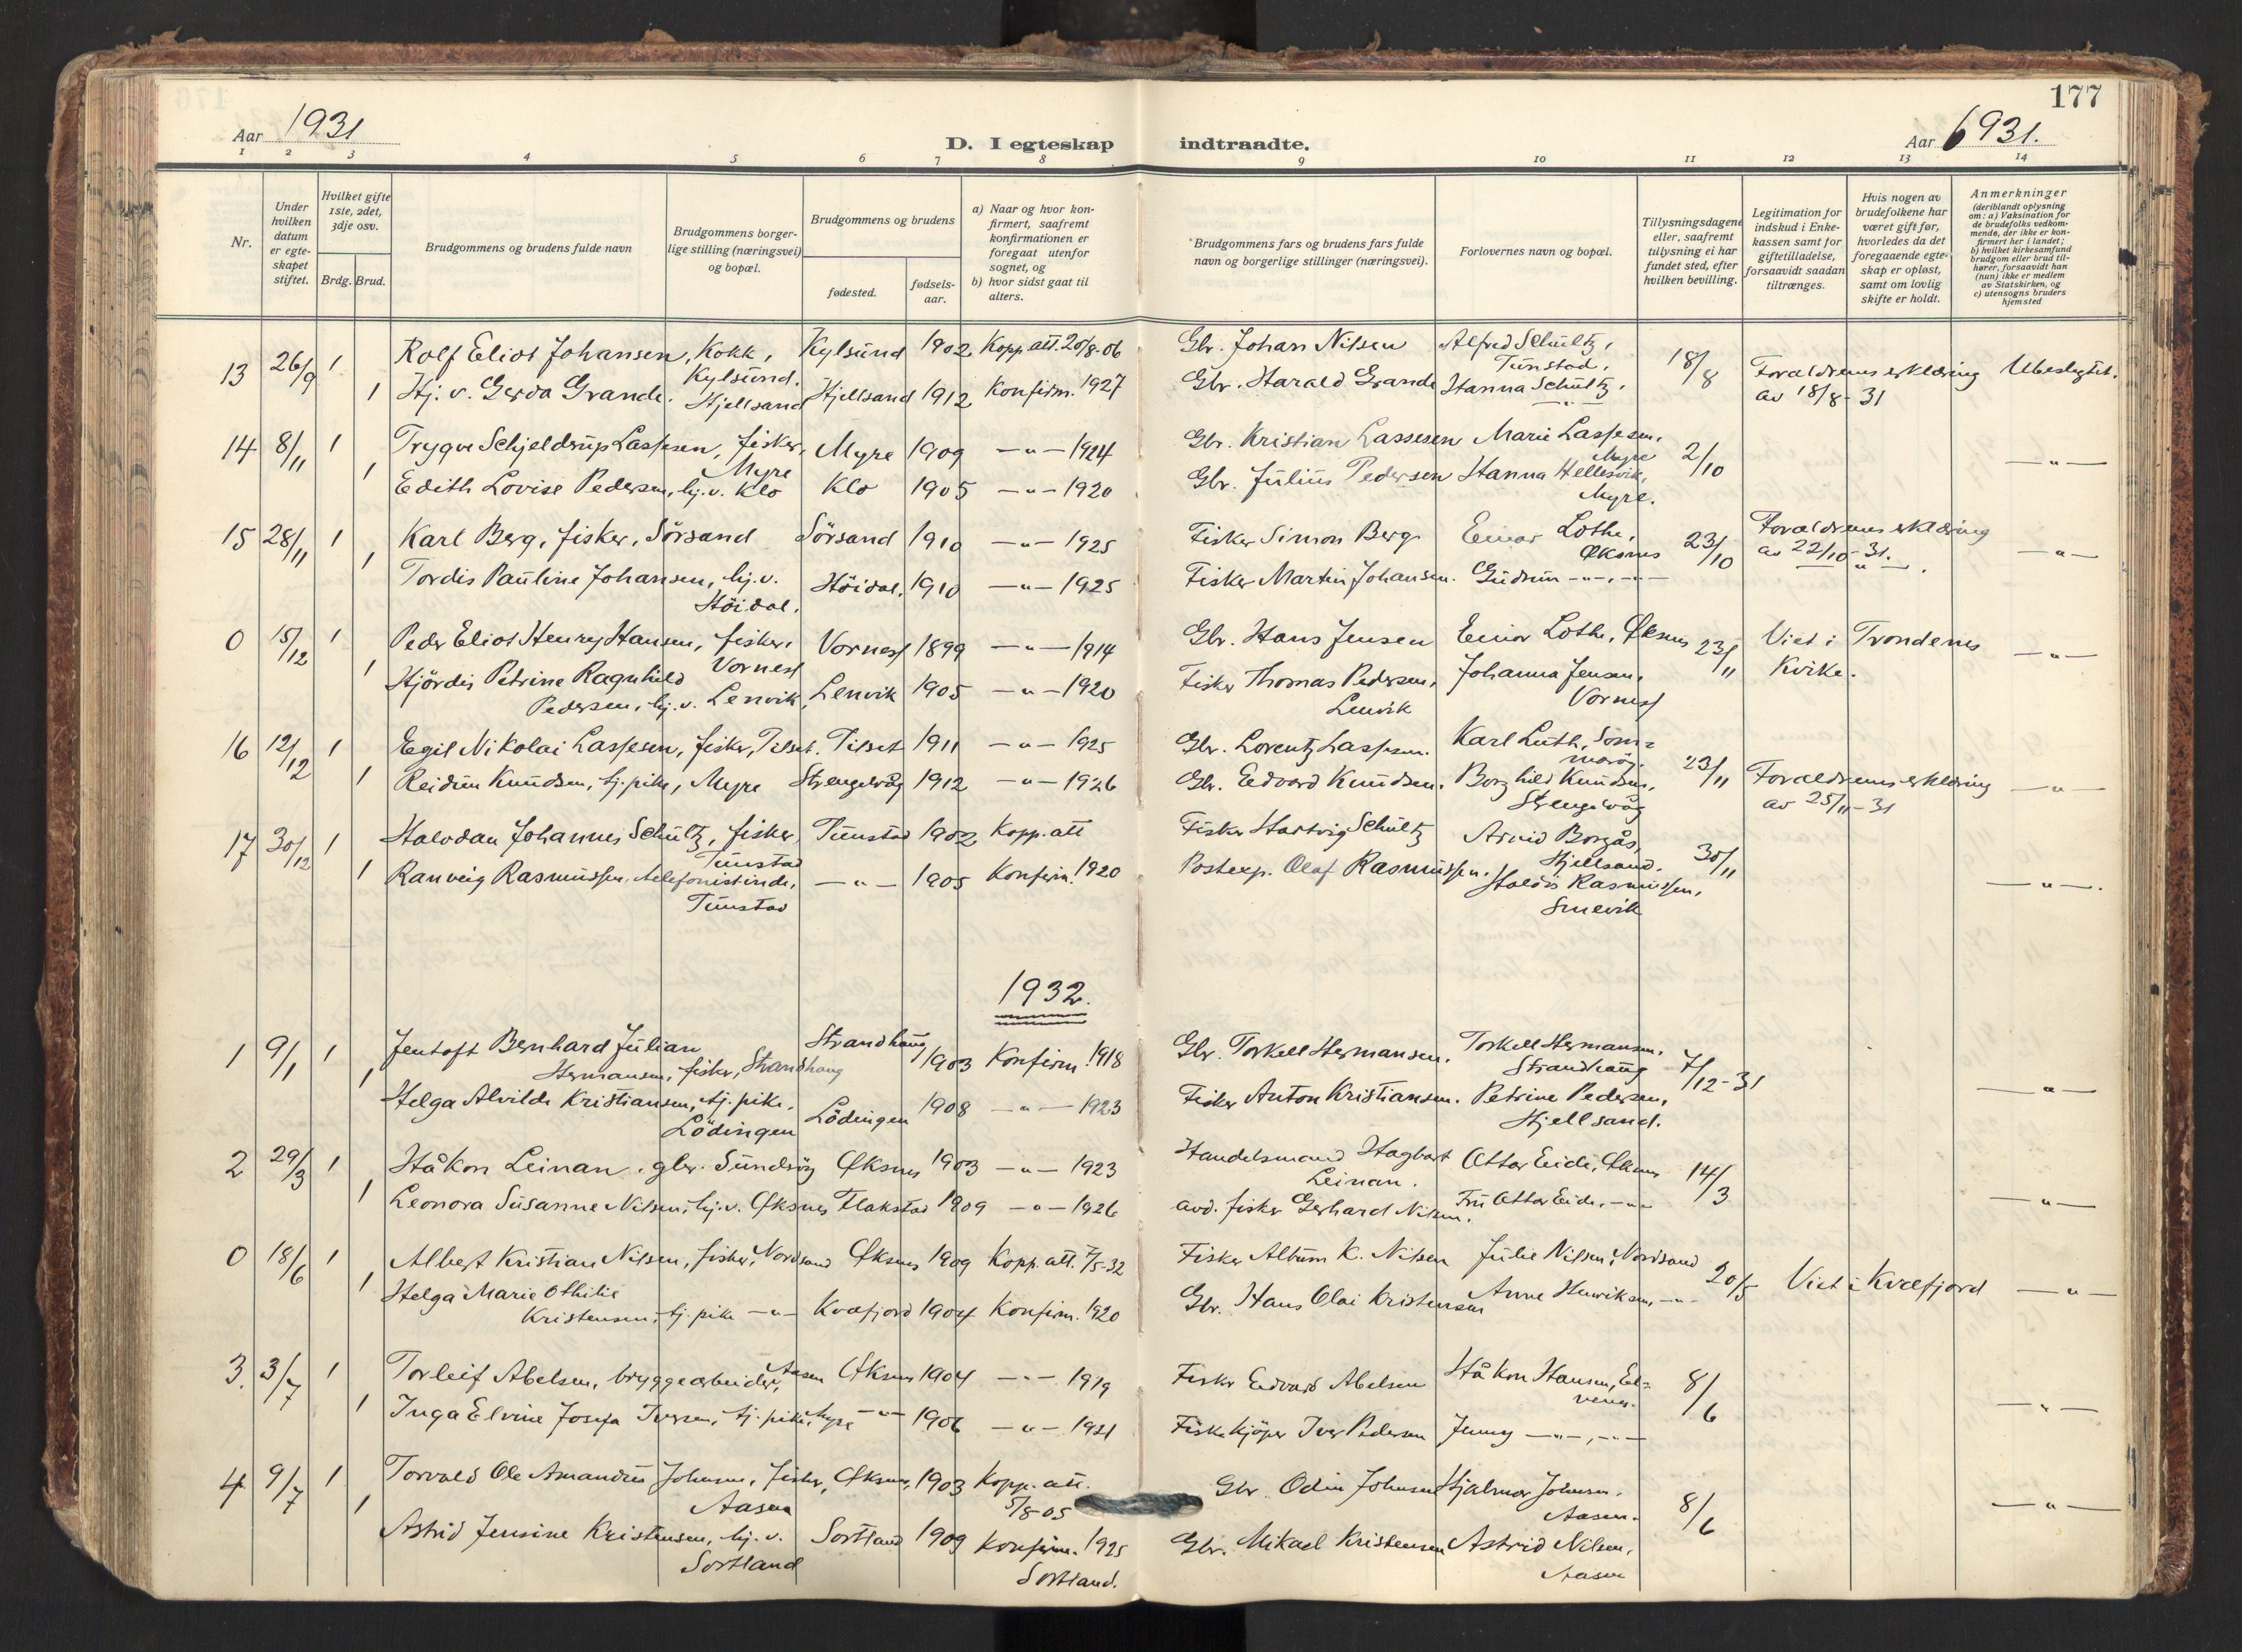 177
Aar 1931
D. I egteskap indtraadte.
Aar 6931.
1 2 3 4 5 6 7 8 9 10 11 12 13 14
Nr.
Under hvilken datum er egteskapet stiftet.
Hvilket gifte 1ste, 2det, 3dje osv.
Brdg. Brud.
Brudgommens og brudens fulde navn
Brudgommens borgerlige stilling (næringsvei) og bopæl.
Brudgommens og brudens
fødested.
fødselsaar.
a) Naar og hvor konfirmert, saafremt konfirmationen er foregaat utenfor sognet, og
b) hvor sidst gaat til alters.
Brudgommens fars og brudens fars fulde navn og borgerlige stillinger (næringsvei).
Forlovernes navn og bopæl.
Tillysningsdagene eller, saafremt tillysning ei har fundet sted, efter hvilken bevilling.
Legitimation for indskud i Enkekassen samt for giftetilladelse, forsaavidt saadan tiltrænges.
Hvis nogen av brudefolkene har været gift før, hvorledes da det foregaaende egteskap er opløst, samt om lovlig skifte er holdt.
Anmerkninger
(deriblandt oplysning om: a) Vaksination for de brudefolks vedkommende, der ikke er konfirmert her i landet; b) hvilket kirkesamfund brudgom eller brud tilhører, forsaavidt han (hun) ikke er medlem av Statskirken, og c) utensogns bruders hjemsted
13 26/9 1 Rolf Eliot Johansen, Kokk, Kylsund. Kylsund 1902 Kopp. att. 20/8-06 Gbr. Johan Nilsen Alfred Schültz, Tunstad. 18/8 Forældrenes erklæring av 18/8-31 Ubeslegtet.
1 Hj. v. Gerda Grande. Hjellsand Hjellsand 1912 Konfirm. 1927 Gbr. Harald Grande Hanna Schultz, -"-
14 8/11 1 Trygve Schjeldrup Lassesen, fisker, Myre Myre 1909 -"- 1924 Gbr. Kristian Lassesen Marie Lassesen, Myre 2/10 -"-
1 Edith Lovise Pedersen, hj. v. Klo Klo 1905 -"- 1920 Gbr. Julius Pedersen Hanna Hellesvik, Myre.
15 28/11 1 Karl Berg, fisker, Sörsand Sörsand 1910 -"- 1925 Fisker Simon Berg Einar Lothe, Øksnes 23/10 Forældrenes erklæring av 22/10-31. -"-
1 Tordis Pauline Johansen, hj. v. Höidal. Höidal. 1910 -"- 1925 Fisker Martin Johansen. Gudrun -"-, -"-
0 15/12 1 Peder Eliot Henry Hansen, fisker, Vorness Vorness 1899 -"- 1914 Gbr. Hans Jensen Einar Lothe, Øksnes 23/11 Viet i Trondenes Kirke. -"-
1 Hjördis Petrine Ragnhild Pedersen, hj. v. Lenvik, Lenvik 1905 -"- 1920 Fisker Thomas Pedersen, Lenvik Johanna Jensen, Vorness
16 12/12 1 Egil Nikolai Lassesen, fisker, Tilset. Tilset 1911 -"- 1925 Gbr. Lorentz Lassesen. Karl Luth, 23/11 Forældrenes erklæring av 25/11-31 -"-
1 Reidun Knudsen, tj. pike, Myre Strengelvåg 1912 -"- 1926 Gbr. Edvard Knudsen. Borghild Knudsen, Strengelvåg
17 30/12 1 Halvdan Johannes Schultz, fisker, Tunstad Tunstad 1902 Kopp. att Fisker Hartvig Schultz Arvid Borgås, Hjellsand. 30/11 -"-.
1 Ranveig Rasmussen, telefonistinde, Tunstad -"- 1905 Konfirm. 1920 Postexp. Olaf Rasmussen. Haldis Rasmussen, Smevik
1932.
1 9/1 1 Jentoft Bernhard Julian Hermansen, fisker, Strandhaug Strandhaug 1903 Konfirm. 1918 Gbr. Torkell Hermansen. Torkell Hermansen, Strandhaug 7/12-31 -"-
1 Helga Alvilde Kristiansen, tj. pike, Lödingen Lödingen 1908 -"- 1923 Fisker Anton Kristiansen. Petrine Pedersen, Hjellsand.
2 29/3 1 Håkon Leinan, gbr. Sundsög Øksnes 1903 -"- 1923 Handelsmand Hagbart Leinan. Ottar Eide, Øksnes 14/3 -"-
1 Leonora Susanne Nilsen, hj. v. Øksnes Flakstad 1909 -"- 1926 avd. fisker Gerhard Nilsen. Fru Ottar Eide, -"-
0 18/6 1 Albert Kristian Nilsen, fisker, Nordsand Øksnes 1909 Kopp. att. 7/5-32 Fisker Album K. Nilsen Julie Nilsen, Nordsand 20/5 Viet i Kvæfjord -"-
1 Helga Marie Othilie Kristensen, tj. pike -"- Kvæfjord 1904 Konfirm. 1920 Gbr. Hans Olai Kristensen Anne Henriksen -"-
3. 3/7 1 Torleif Abelsen, bryggearbeider, Aasen Øksnes 1904 -"- 1919 Fisker Edvard Abelsen Håkon Hansen, 8/6 -"-
1 Inga Elvine Josefa Iversen, tj. pike, Myre -"- 1906 -"- 1921 Fiskekjöper Iver Pedersen Jenny -"-, -"-
4 9/7 1 Torvald Ole Amandus Johnsen, fisker, Aasen Øksnes, 1903 Kopp. att. 5/8-05 Gbr. Odin Johnsen Hjalmar Johnsen, Aasen. 8/6 -"-
1 Astrid Jensine Kristensen, hj. v. Sortland Sortland 1909 Konfirm. 1925 Sortland. Gbr. Mikael Kristensen Astrid Nilsen, Aasen